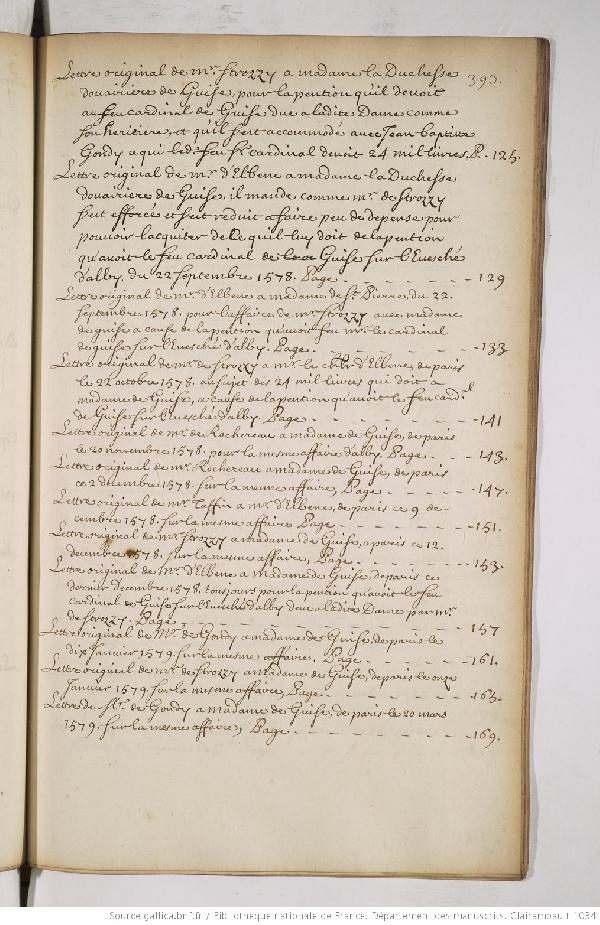 393.
Lettre original de mr. strozzy a madame la Duchesse
douairiere de Guise, pour la pention quil devoit
au feu cardinal de Guise due a ladite Dame comme
son heritiere, et quil s'est accommodé avec Jean baptiste
Gondy a qui led. feu Sr. cardinal devoit 24 mil livres. P. - 125.
Lettre original de mr. d'Elbene a madame la Duchesse
douairiere de Guise, il mande comme mr. de strozzy
s'est efforcé et s'est reduit a faire peu de depense pour
pouvoir s'acquiter de ce quil luy doit de la pention
qu'avoit le feu cardinal de Guise sur l'Evesché
d'alby, du 22 septembre 1578. Page - - - - - - 129
Lettre original de mr. d'Elbene a madame de St. Pierre, du 22.
septembre 1578. pour l'affaire de mr. strozzy avec madame
de guise a cause de la pention qu'avoit feu mr. le cardinal
de guise sur l'Evesché d'alby. Page. - - - - - - 133
Lettre original de mr. de strozzy a mr. le chlr. d'Elbene, de paris
le 22 octobre 1578. au sujet des 24 mil livres qui doit a
madame de Guise, a cause de la pention qu'avoit le feu card.l
de Guise sur l'Evesché d'alby. Page - - - - - - 141
Lettre original de mr. de Rochereau a madame de Guise, de paris
le 20 novembre 1578. pour la mesme affaire d'alby. Page - - 143.
Lettre original de mr. Rochereau a madame de Guise, de paris
ce 2 decembre 1578. sur la mesme affaire, Page - - - - 147.
Lettre original de mr. Taffin a mr. d'Elbene, de paris ce 9 de-
cembre 1578. sur la mesme affaire Page - - - - - - 151.
Lettre original de mr. strozzy a madame de Guise, a paris ce 12.
decembre 1578. sur la mesme affaire, Page - - - - - 153.
Lettre original de Mr. d'Elbene a Madame de Guise, de paris ce
dernier decembre 1578. tousjours pour la pention qu'avoit le feu
cardinal de Guise sur l'Evesché d'alby deue a ladite Dame par mr.
de strozzy. Page - - - - - - - - 157
Lettre original de Mr. de Gondy a madame de Guise, de paris le
dix Janvier 1579. sur la mesme affaire. Page - - - - 161.
Lettre original de mr. de strozzy a madame de Guise, de paris le onze
Janvier 1579. sur la mesme affaire, Page - - - - - - 165.
Lettre de Mr. de Gondy a madame de Guise, de paris le 20 mars
1579. sur la mesme affaire, Page - - - - - - 169.
Source gallica.bnf.fr / Bibliothèque nationale de France. Département des manuscrits. Clairambault 1034